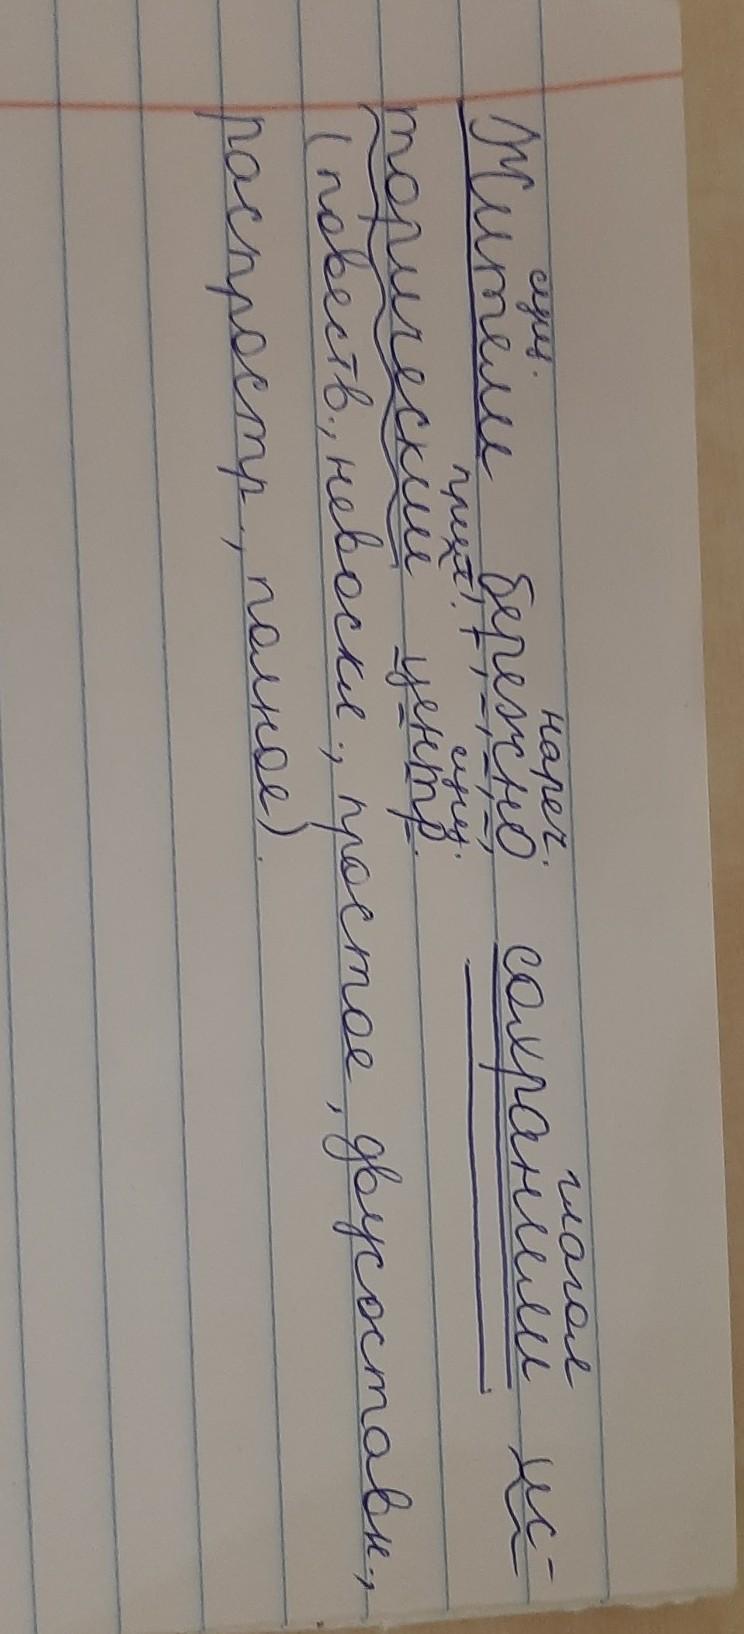 сущ. нареч. глагол
Жители бережно сохранили ис-
прил. сущ.
торический центр.
(повеств., невоскл., простое, двусоставн.,
распростр., полное).